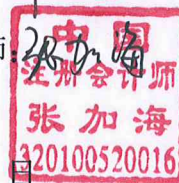 师：张加海
中国
注册会计师
张加海
320100520016